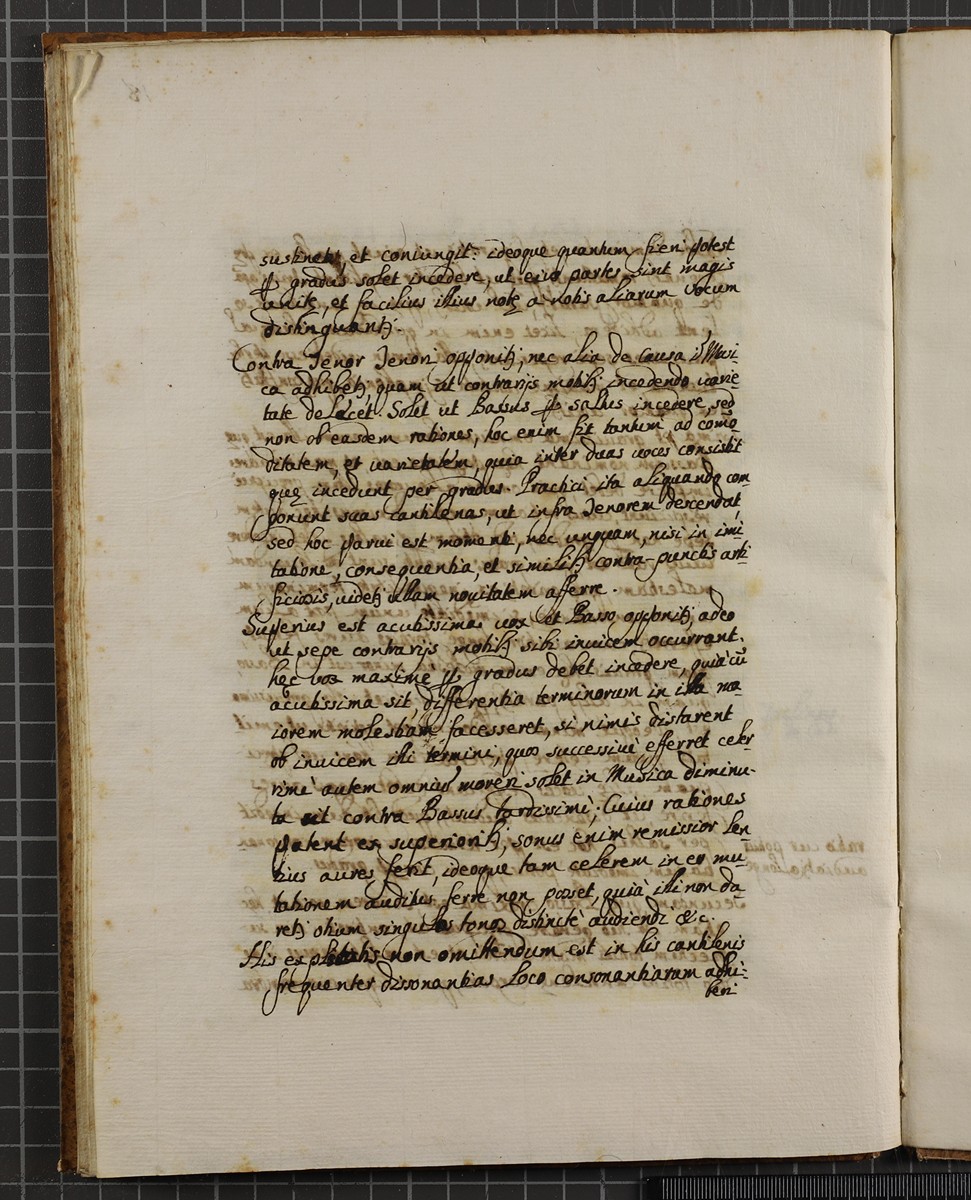 sustinetꝫ, et coniungit: ideoque quantum fieri potest
ꝑ gradus solet incedere, ut eius partes sint magis
unitę, et facilius illius notę a notis aliarum vocum
distinguantꝫ.
Contra Tenor Tenori opponitꝫ, nec alia de causa ī Musi-
ca adhibetꝫ, quam ut contrarijs motibꝫ incedendo varie
tate delectet. Solet ut Bassus ꝑ saltus incedere, sed
non ob easdem rationes, hoc enim fit tantum ad como-
ditatem, et varietatem, quia inter duas voces consistit
quę incedunt per gradus. Practici ita aliquando com
ponunt suas cantilenas, ut infra Tenorem descendat,
sed hoc parui est momenti, nec unquam, nisi in imi-
tatione, consequentia, et similibꝫ contra-punctis arti-
ficiosis, videtꝫ ullam nouitatem afferre.
Superius est acutissima vox ut Basso opponitꝫ, adeo
ut sepe contrarijs motibꝫ sibi inuicem occurrant.
hęc vox maximè ꝑ gradus debet incedere, quià cū
acutissima sit, differentia terminorum in illa ma
iorem molestiam facesseret, si nimis distarent
ob inuicem illi termini, quos successiuè efferret celer
rimè autem omniū moueri solet in Musica diminu-
ta sit contra Bassus tardissimè; Cuius rationes
patent ex superioribꝫ, sonus enim remissior len
tius aures ferit, ideoque tam celerem in eo mu-
tationem auditus ferre non posset, quià illi non da
retꝫ otium singulos tonos distinctè audiendi &c.
His explicatis non omittendum est in his cantilenis
frequenter dissonantias loco consonantiarum adhi-
beri